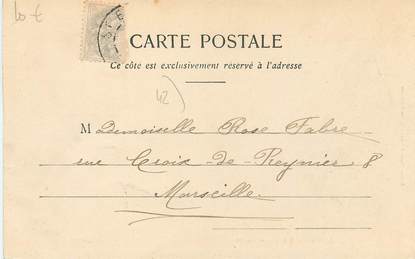 10 €
CARTE POSTALE
Ce côté est exclusivement réservé à l'adresse
42
Mademoiselle Rose Fabre
rue Croix-de-Reynier 8
Marseille